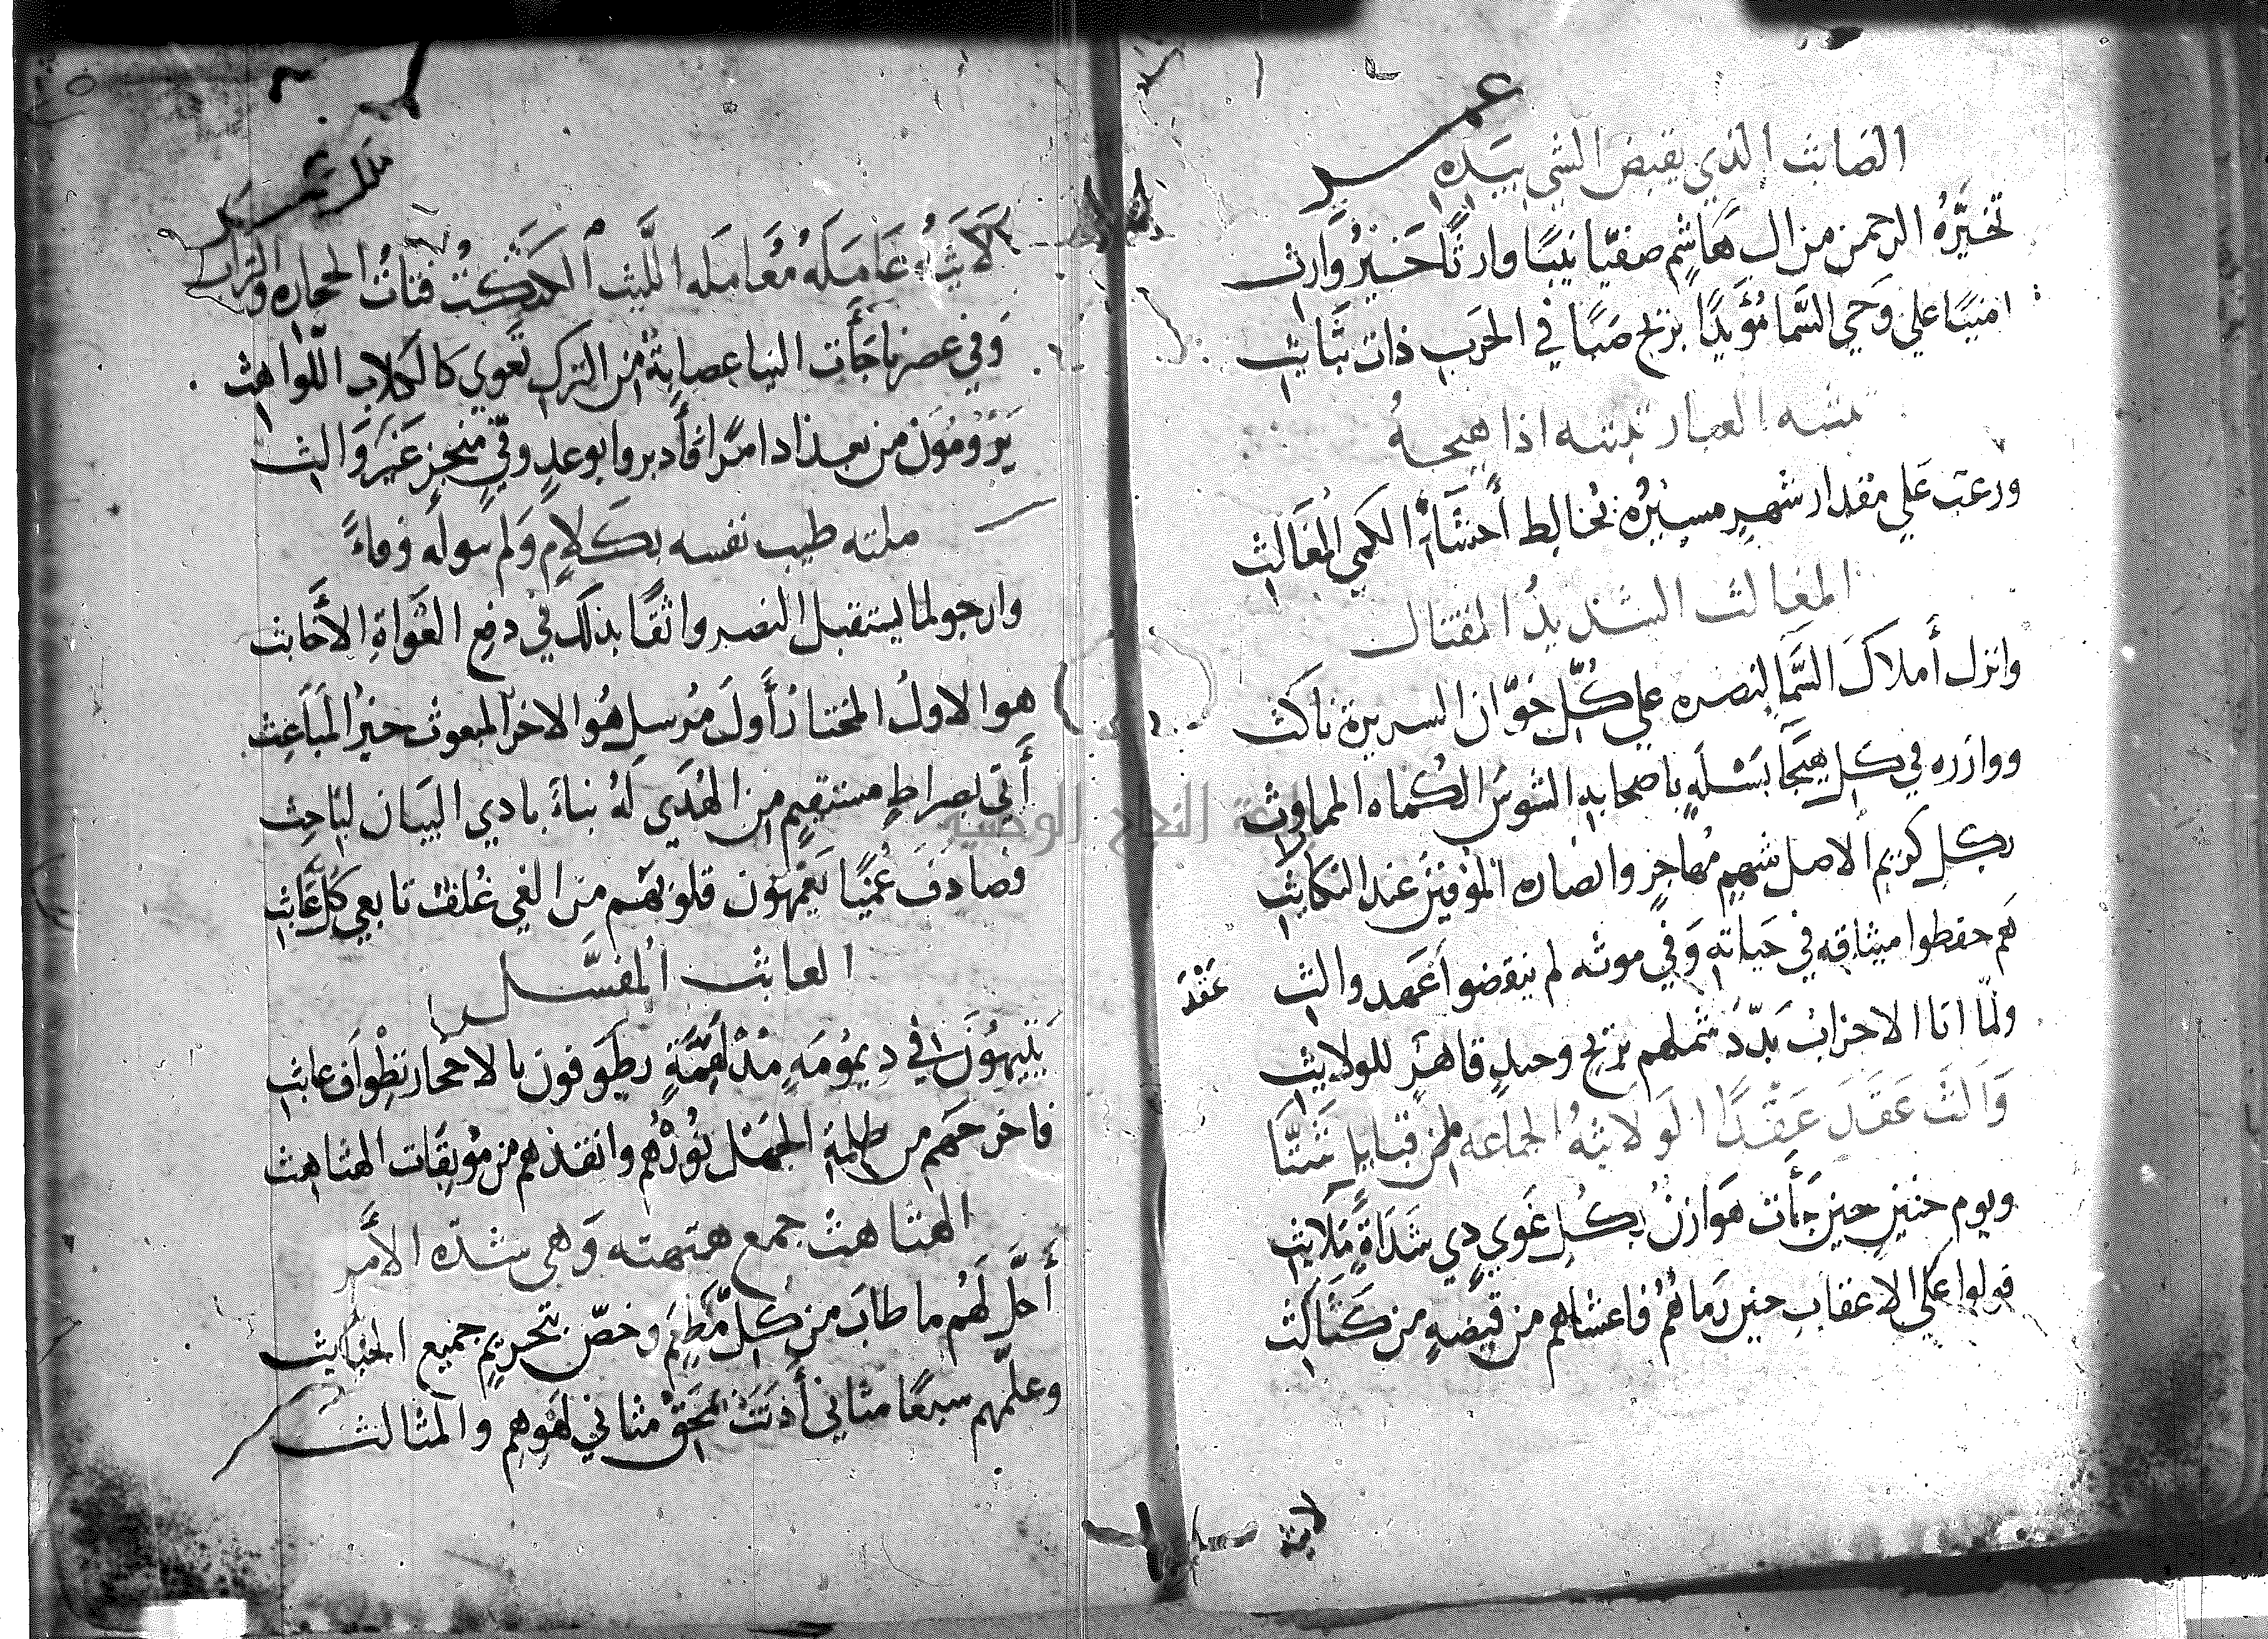 عمر
الضابث الذي يقبض الشي بيَدِهِ
تخيَّرَهُ الرحمن من ال هَاشِم صَفيّا نبيًا وارثًا خَيْرُ وَارِث
امينًا علي وَحي السَّما مُؤَيدًا بريح صَبًا في الحَرب ذات نَبَّايث
نبثه الغبار نبثه اذا هيجهُ
ورعب عَلي مقدار شهرٍ مسيْرُهُ يُخالِط أحْشَآءَ الكمي المُغَالث
المغالث الشديدُ القتال
وانزل أملاكَ السَّما لنصره علي كُلّ خوّان السريرة ناكث
ووازره في كل هيجَا بَسْلَهٍ باصحابهِ الشوسُ الكُماه المماوِث
بكل كريم الاصل شهمٍ مُهاجرٍ وانصاره المُوْفيْن عند النكايث
هَم حفظوا ميثاقه في حَياتهِ وَفي موته لم ينقضوا عَهد والث
عَقْدَ
ولمّا اتا الاحزابُ بَدّدَ شملهم بريح وحدٍ قاهرٍ للولايث
وَالثَ عَقَدَ عَقْدًا الوَلايثهُ الجماعه من قبايل شَتَّا
ويوم حنين حين جَأت هَوازنُ بكل غَوي ذي شَذاةٍ مَلايث
فولوا عَلى الاعقاب حين رَماهُمُ فاعشاهم من قبضهٍ من كثَالث
لايثه
ملك نفسه
لَاثِيَهُ عَامَلَهُ مُعَامَلَه اللّيث الكَثْكَثُ فتاتُ الحجاره والتراب
وَفي عصرنا جَأَت الينا عصابةٌ من الترك تَعوي كالكلاب اللّواهث
يَرُومُونَ من بغداد امرًا فأدبروا بوعدٍ وفيٍّ منجزٍ غَيْرَ وَالث
ملثه طيب نفسه بكلامٍ وَلم ينوله وفاءً
وارجو لما يستقبل النصر واثقًا بذلك في دفع الغُواةِ الأخَابث
هو الاولُ المختارُ أَولَ مُرسلٍ هُوَ الاخرُ المبعوث خيرُ المَبَاعِث
أَتي بصراطٍ مستقيمٍ من الهُدَي لَهُ نباءَ بادي البيَان لبَاحِث
فصادفَ عُمْيًا يَعْمَهُونَ قلوبهَم من الغي غُلفٌ تابعي كل عَابث
العابث المفسَّل
يتيهُونَ في ديمُومَهٍ مُدْلَهِمَّةٍ يطوفون بالاحجار تطْوافَ عابث
فاخرجهَم من ظلمةِ الجَهَل نُورُهُم وانقذهم من مُوبِقَات الهثاهث
الهثاهث جمع هثهثه وَهي شدّه الأمر
أحَلّ لهُم ما طابَ من كل مَّطعَمٍ وخصّ بتحريمٍ جميع الخبايث
وعلّمهم سبعًا مثاني أذهَبَتْ بحَقٍ مثاني لهوهِم والمثالث